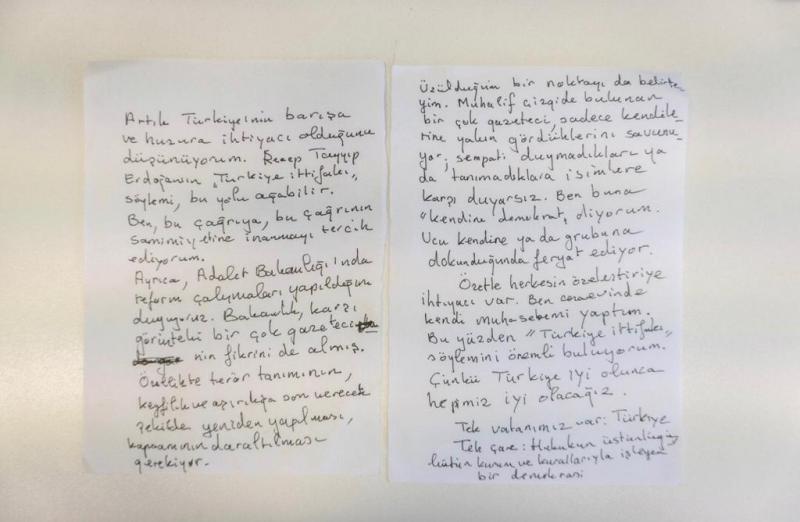 Artık Türkiye'nin barışa
ve huzura ihtiyacı olduğunu
düşünüyorum. Recep Tayyip
Erdoğanın "Türkiye ittifakı"
söylemi, bu yolu açabilir.
Ben, bu çağrıya, bu çağrının
samimiyetine inanmayı tercih
ediyorum.
Ayrıca, Adalet Bakanlığı'nda
reform çalışmaları yapıldığını
duyuyoruz. Bakanlık, karşı
görüşteki bir çok gazeteci
nin fikrini de almış.
Özellikle terör tanımının,
keyfilik ve aşırılığa son verecek
şekilde yeniden yapılması,
kapsamının daraltılması
gerekiyor.
Üzüldüğüm bir noktayı da belirte_
yim. Muhalif çizgide bulunan
bir çok gazeteci, sadece kendile_
rine yakın gördüklerini savunu_
yor, sempati duymadıkları ya
da tanımadıkları isimlere
karşı duyarsız. Ben buna
"kendine demokrat" diyorum.
Ucu kendine ya da grubuna
dokunduğunda feryat ediyor.
Özetle herkesin özeleştiriye
ihtiyacı var. Ben cezaevinde
kendi muhasebemi yaptım.
Bu yüzden "Türkiye ittifakı"
söylemini önemli buluyorum.
Çünkü Türkiye iyi olunca
hepimiz iyi olacağız.
Tek vatanımız var: Türkiye
Tek çare: Hukukun üstünlüğü,
bütün kurum ve kurallarıyla işleyen
bir demokrasi